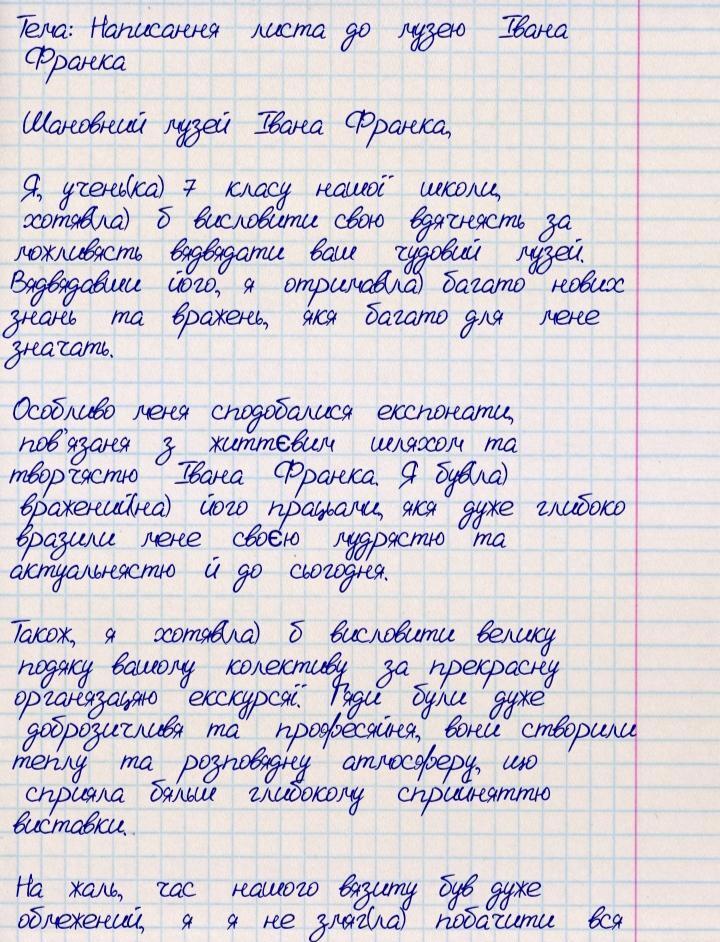 Тема: Написання листа до музею Івана
Франка
Шановний музей Івана Франка,
Я, учень(ка) 7 класу нашої школи,
хотяв(ла) б висловити свою вдячнясть за
можливясть вядвядати ваш чудовий музей.
Вядвядавши його, я отримав(ла) багато нових
знань та вражень, якя багато для мене
значать.
Особливо мене сподобалися експонати,
пов'язаня з життєвим шляхом та
творчястю Івана Франка. Я був(ла)
вражений(на) його працями, якя дуже глибоко
вразили мене своєю мудрястю та
актуальнястю й до сьогодня.
Також, я хотяв(ла) б висловити велику
подяку вашому колективу за прекрасну
органязацяю екскурсяї. Гяди були дуже
доброзичливя та професяйня, вони створили
теплу та розповядну атмосферу, що
сприяла бяльш глибокому сприйняттю
виставки.
На жаль, час нашого вязиту був дуже
обмежений, я я не змяг(ла) побачити вся